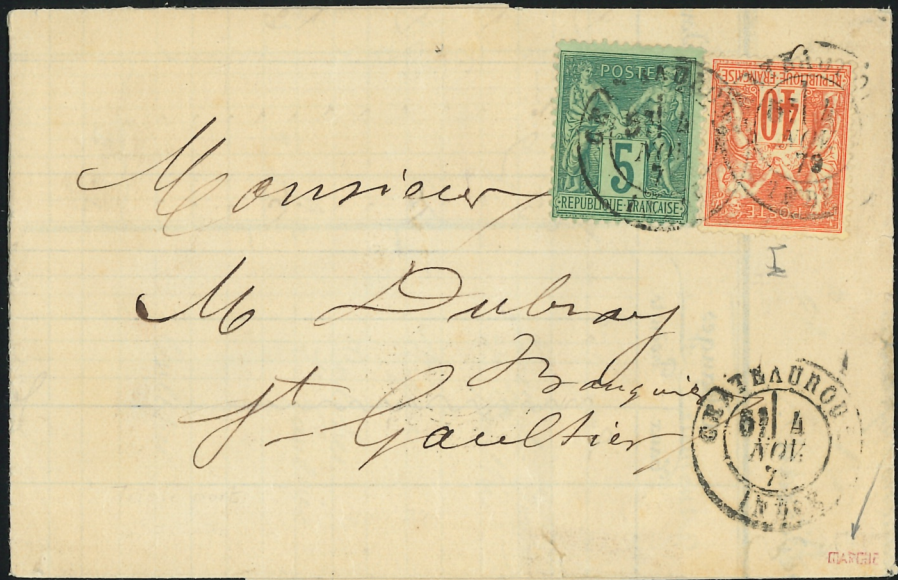 POSTES
5
REPUBLIQUE FRANÇAISE
REPUBLIQUE FRANÇAISE
40
POSTES
4
NOV
79
Monsieur
M Dubray
Banquier
St Gaultier
I
CHATEAUROU
4
NOV
7
INDRE
MARCHE